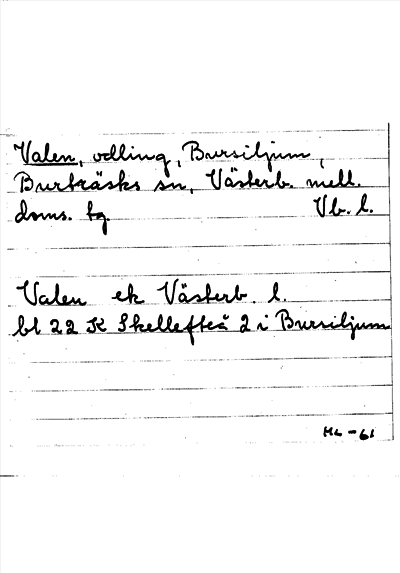 Valen, odling, Bursiljum,
Burträsks sn, Västerb. mell.
doms. tg. Vb. l.
Valen ek Västerb. l.
bl 22 K Skellefteå 2 i Bursiljum
ML-61